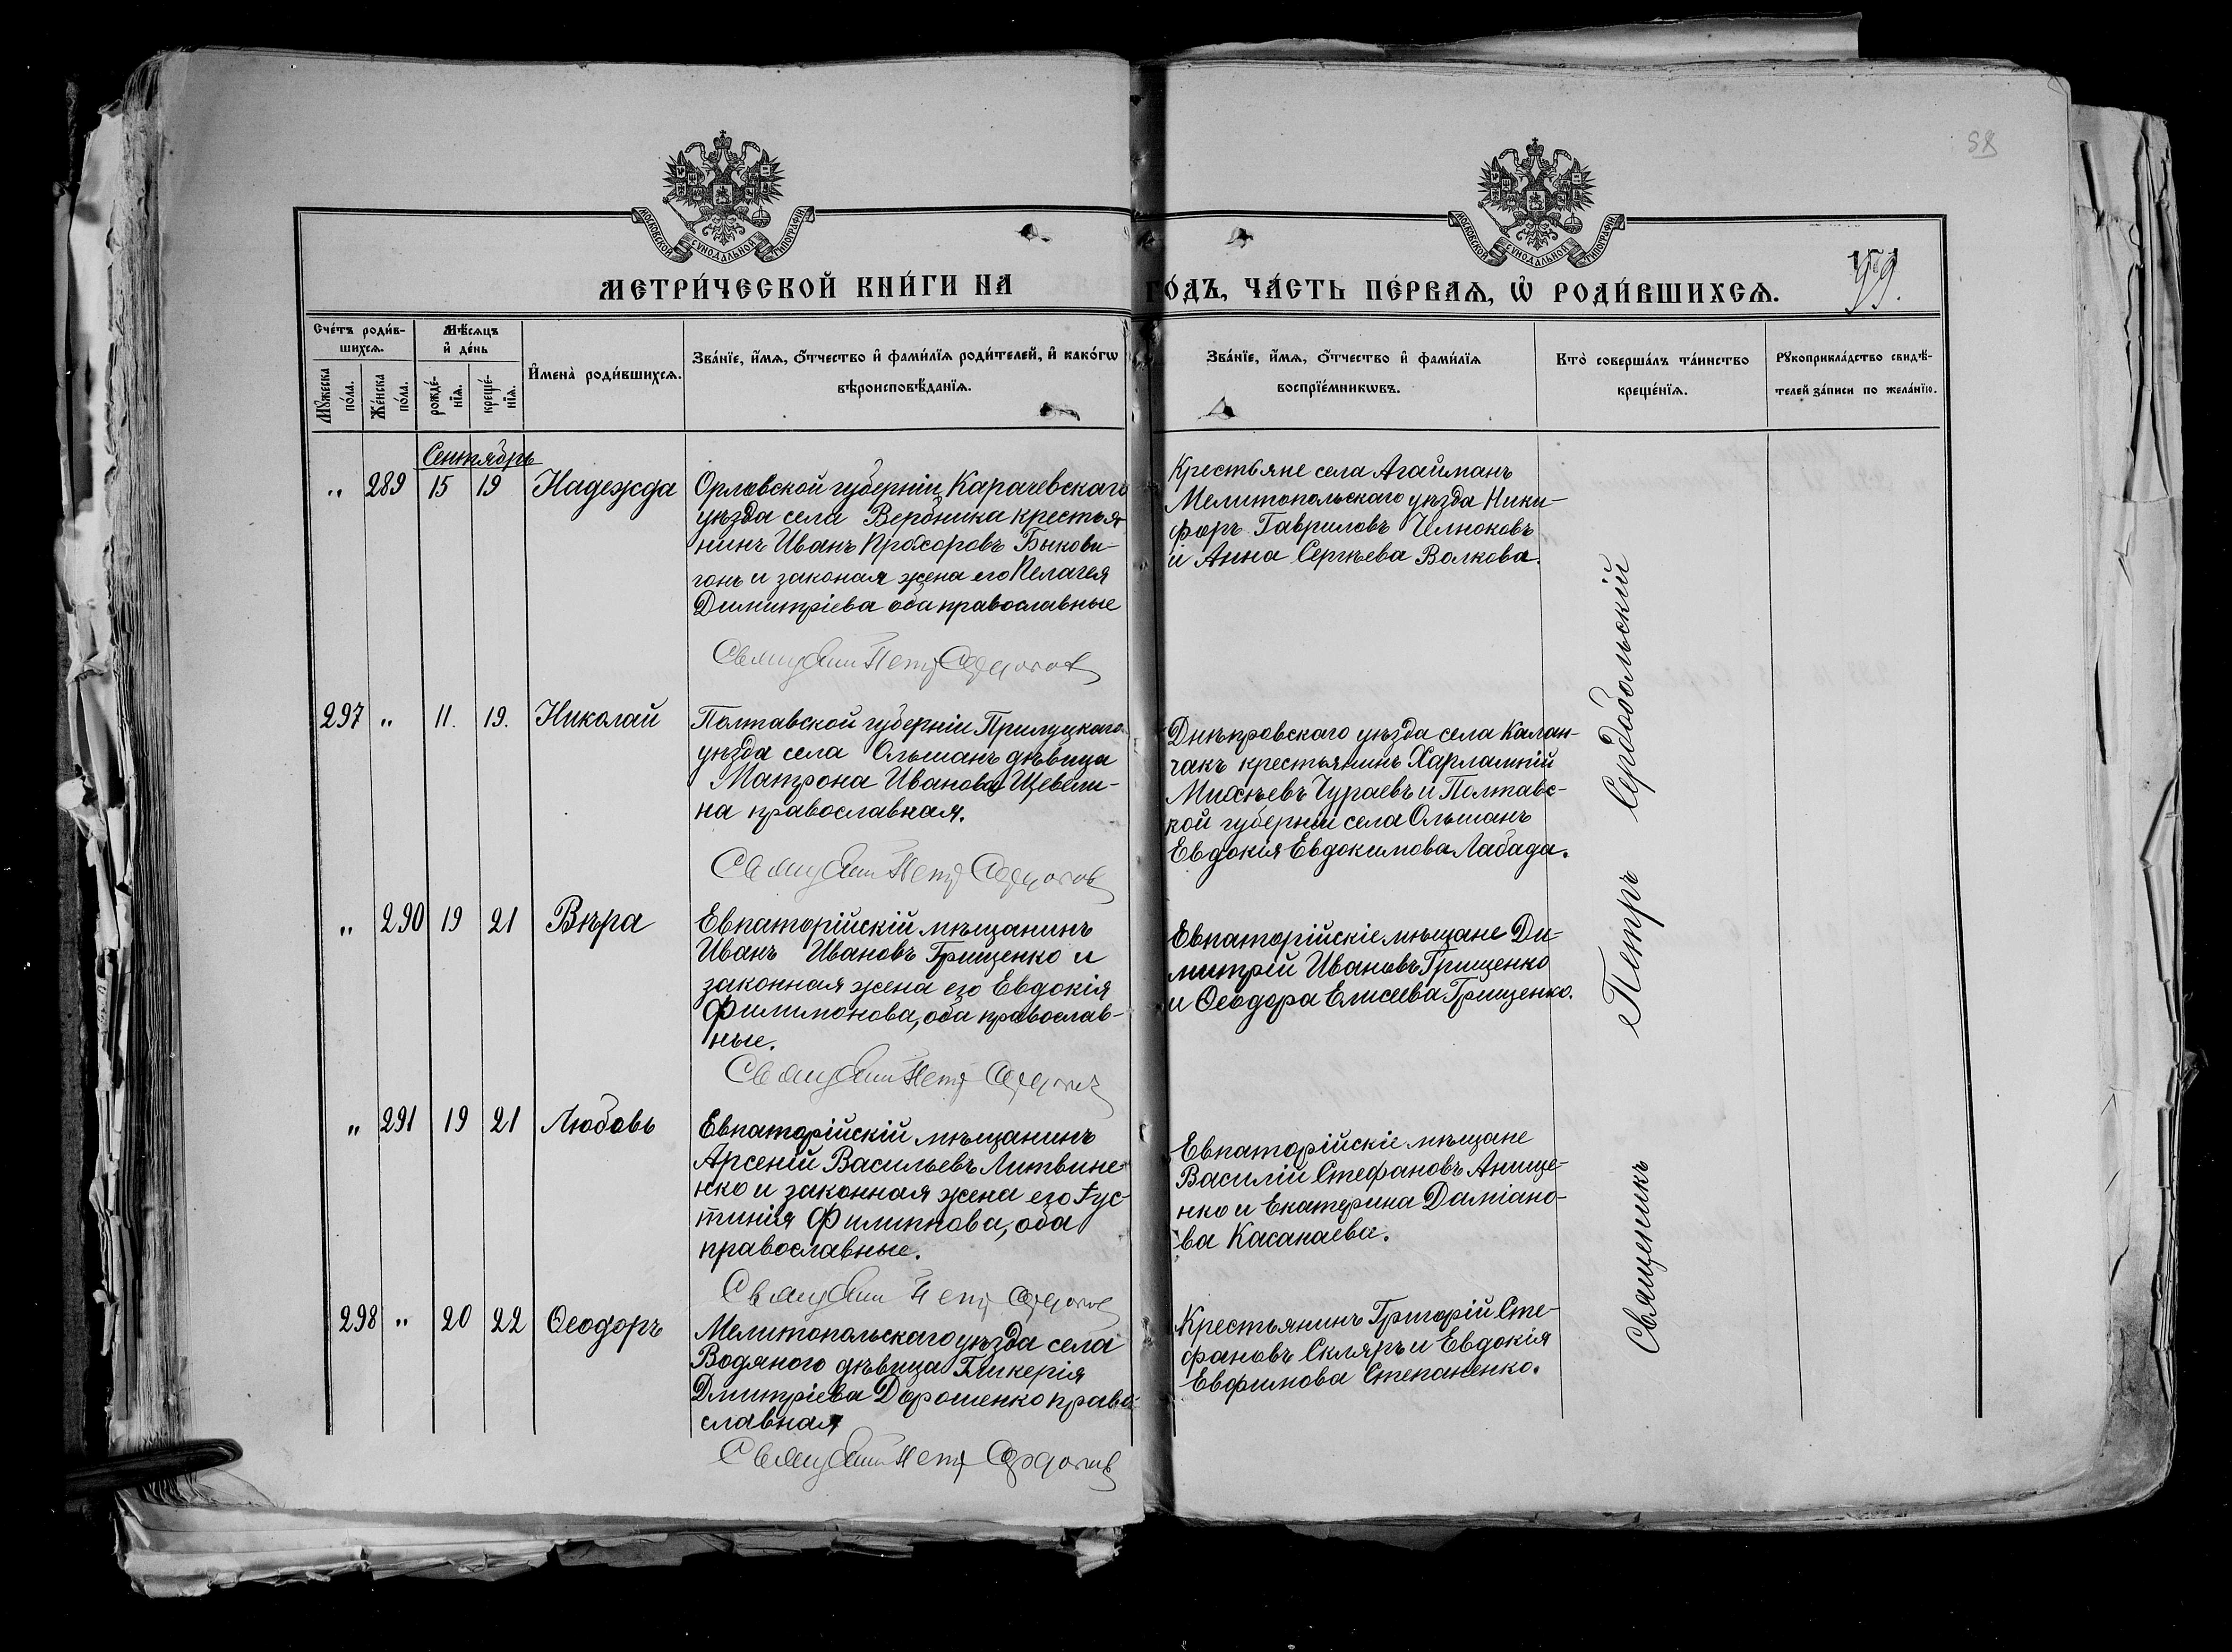 58
МОСКОВСКОЙ СУНОДАЛЬНОЙ ТИПОГРАФІИ
МОСКОВСКОЙ СУНОДАЛЬНОЙ ТИПОГРАФІИ
МЕТРИ́ЧЕСКОЙ КНИ́ГИ НА ГО́ДЪ, ЧА́СТЬ ПЕ́РВАѦ, Ѡ҆ РОДИ́ВШИХСѦ.
59.
Сче́тъ роди́в-
шихсѧ.
Мѣ́сѧцъ
и҆ де́нь
Мꙋ́жеска
по́ла.
Же́нска
по́ла.
рожде́-
нїѧ.
креще́-
нїѧ.
И҆мена̀ роди́вшихсѧ.
Зва́нїе, и҆́мѧ, ѻ҆́тчество и҆ фами́лїѧ роди́телей, и҆ како́гѡ
вѣроисповѣ́данїѧ.
Зва́нїе, и҆́мѧ, ѻ҆́тчество и҆ фами́лїѧ
воспрїе́мникѡвъ.
Кто̀ соверша́лъ та́инство
креще́нїѧ.
Рꙋкоприкла́дство свидѣ́-
телей за́писи по жела́нїю.
Сентябрь
" 289 15 19 Надежда
Орловской губерніи Карачевскаго
уѣзда села Вербника крестья-
нинъ Иванъ Прохоровъ Быкови-
гонь и законая жена его Пелагея
Димитріева оба православные
Крестьяне села Агайманъ
Мелитопольскаго уѣзда Ники-
форъ Гавриловъ Челноковъ
и Анна Сергѣева Волкова.
Священник Петр
297 " 11. 19. Николай
Полтавской губерніи Прилуцкаго
уѣзда села Ольшанъ дѣвица
Матрона Иванова Щевели-
на православная.
Днѣпровскаго уѣзда села Калан-
чакъ крестьянинъ Харлампій
Михѣевъ Чураевъ и Полтавс-
кой губерніи села Ольшанъ
Евдокія Евдокимова Лабада.
Священник Петр
" 290 19 21 Вѣра
Евпаторійскій мѣщанинъ
Иванъ Ивановъ Грищенко и
законная жена его Евдокія
Филимонова, оба православ-
ные.
Евпаторійскіе мѣщане Ди-
митрій Ивановъ Грищенко
и Ѳеодора Елисеева Грищенко.
Священник Петр
" 291 19 21 Любовь
Евпаторійскій мѣщанинъ
Арсеній Васильевъ Литвине-
нко и законная жена его Іус-
тинія Филиппова, оба
православные.
Евпаторійскіе мѣщане
Василій Стефановъ Анище-
нко и Екатерина Даміано-
ва Касанаева.
Священник Петр
298 " 20 22 Ѳеодоръ
Мелитопольскаго уѣзда села
Водяного дѣвица Гликерія
Дмитріева Дорошенко право-
славная
Крестьянинъ Григорій Сте-
фановъ Скляръ и Евдокія
Евфимова Степаненко.
Священник Петр
Священникъ Петръ Сердобольскій